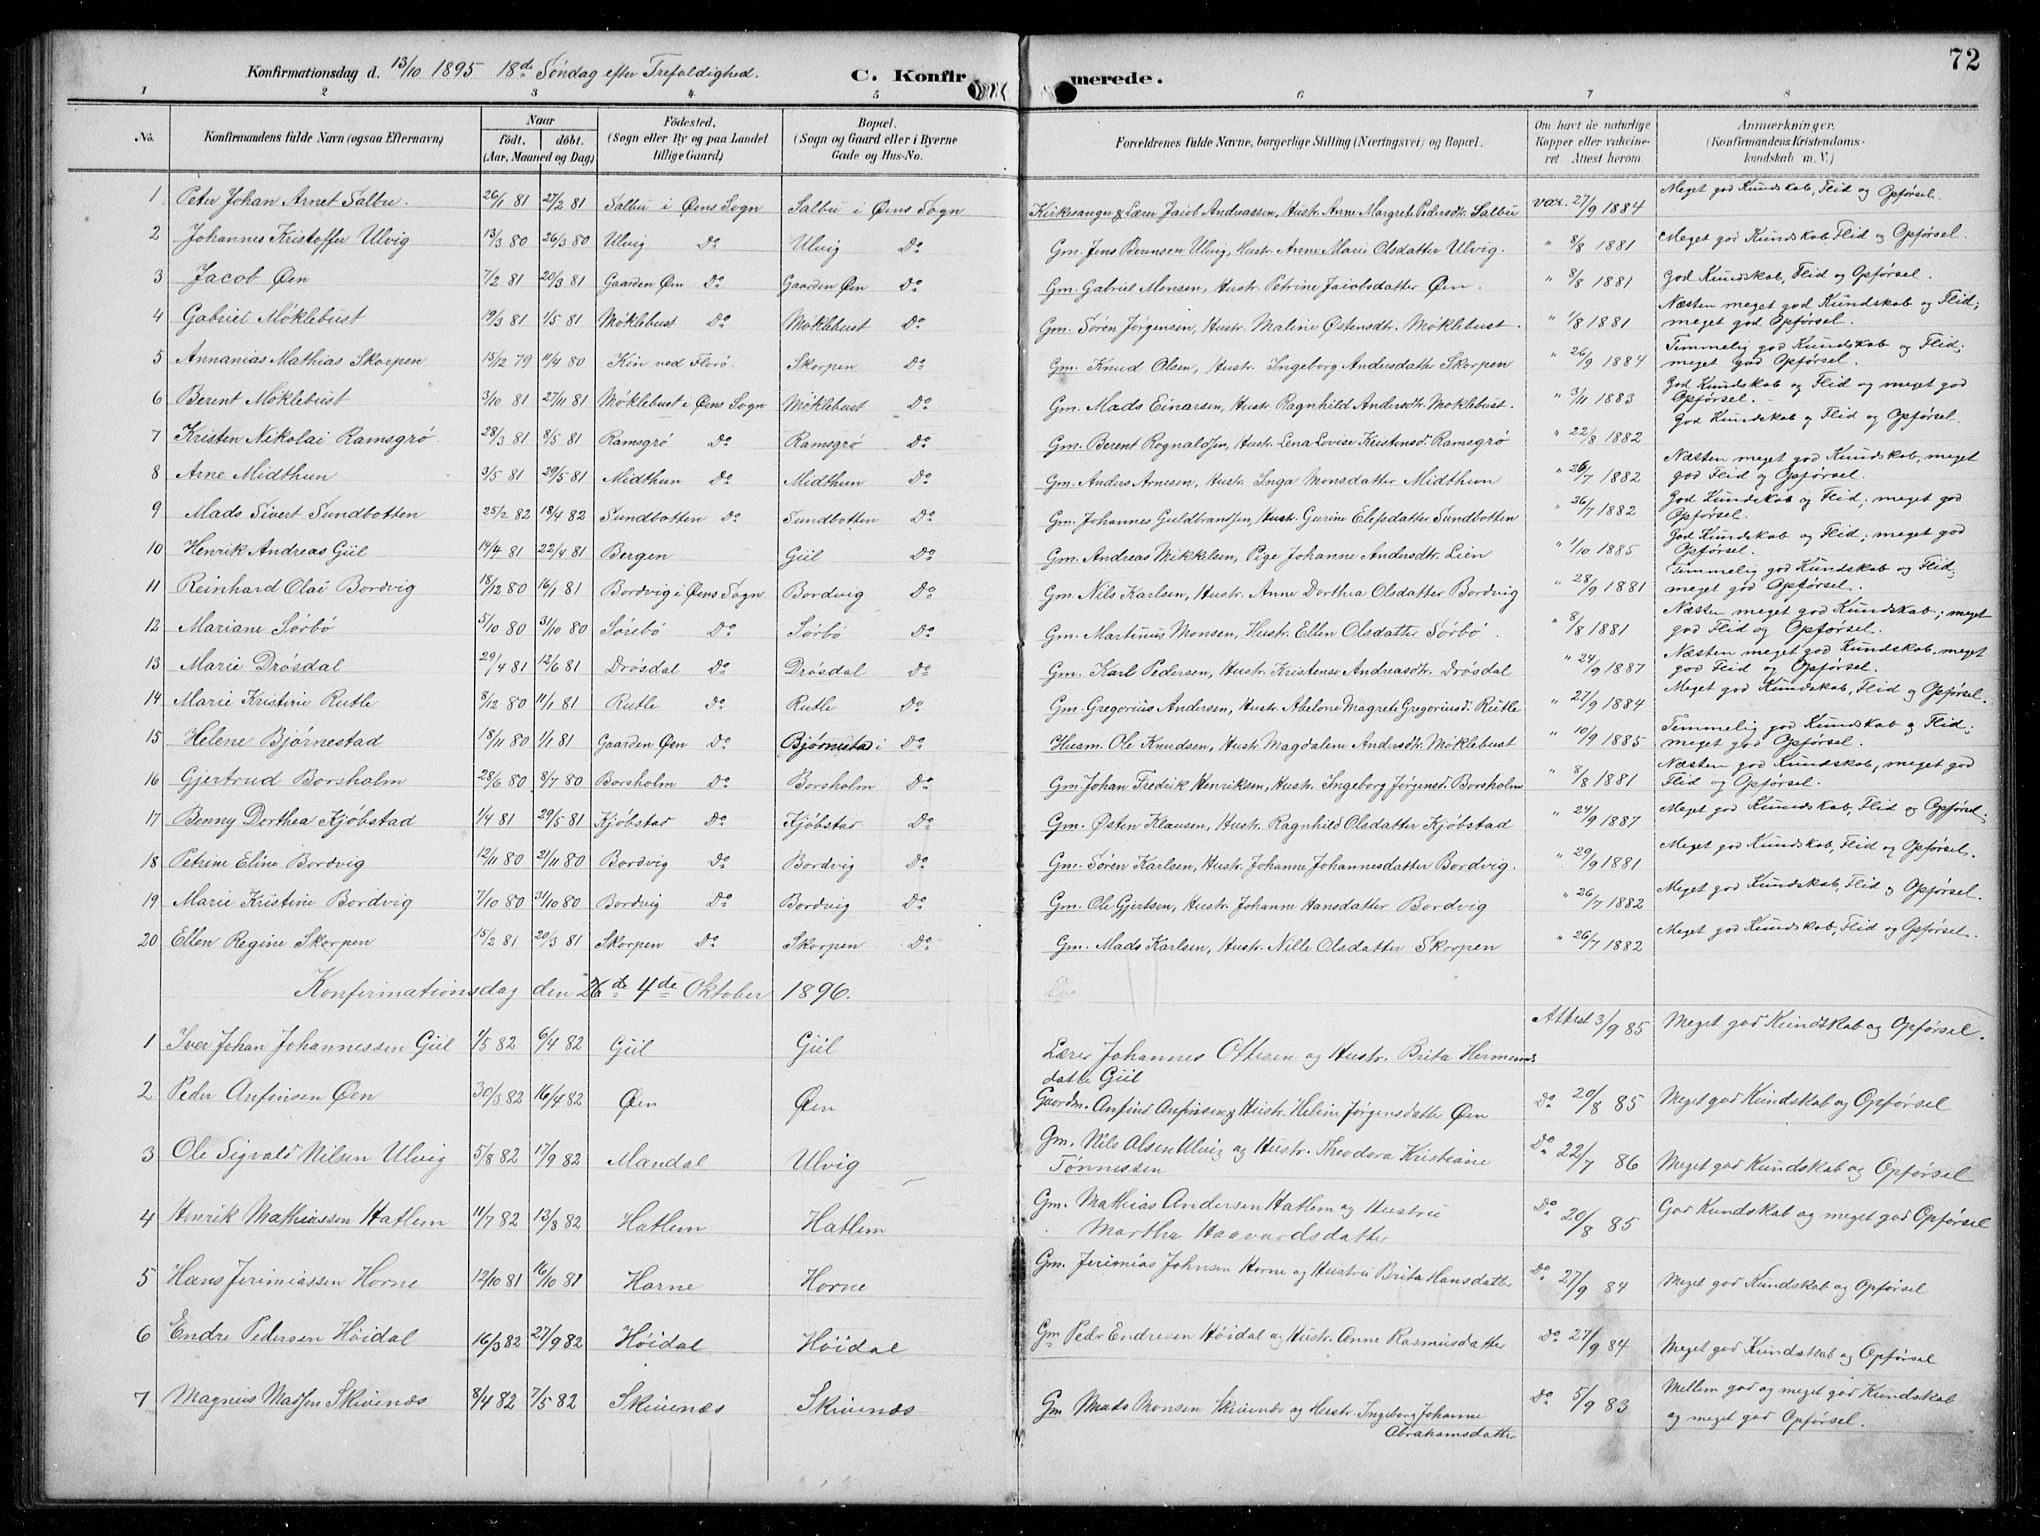 72
Konfirmationsdag d. 13/10 1895 18de Søndag efter Trefoldighed. C. Konfirmerede.
1 2 3 4 5 6 7 8
No. Konfirmandens fulde Navn (ogsaa Efternavn) Naar født. døbt. (Aar, Maaned og Dag) Fødested. (Sogn eller By og paa Landet tillige Gaard) Bopæl. (Sogn og Gaard eller i Byerne Gade og Hus-No. Forældrenes fulde Navne, borgerlige Stilling (Næringsvei) og Bopæl. Om havt de naturlige Kopper eller vakcineret. Attest herom. Anmærkninger. (Konfirmandens Kristendomskundskab m. V.)
1 Peter Johan Arnet Salbu. 26/1 81 27/2 81 Salbu i Øens Sogn Salbu i Øens Sogn Kirkesanger & Lærer Jacob Andreassen, Hustr. Anne Margrete Pedersdtr. Salbu vac. 27/9 1884 Meget god Kundskab, Flid og Opførsel.
2 Johannes Kristoffer Ulvig 13/3 80 26/3 80 Ulvig Do Ulvig Do Gm. Jens Berensen Ulvig, Hustr. Anne Marie Olsdatter Ulvig. " 8/8 1881 Meget god Kundskab Flid og Opførsel.
3 Jacob Øen 7/2 81 20/3 81 Gaarden Øen Do Gaarden Øen Do Gm. Gabriel Monsen, Hustr. Petrine Jacobsdatter Øen. " 8/8 1881 God Kundskab, Flid og Opførsel.
4 Gabriel Møklebust 19/3 81 1/5 81 Møklebust Do Møklebust Do Gm. Søren Jørgensen, Hustr. Maline Østensdtr. Møklebust. " 1/8 1881 Næsten meget god Kundskab og Flid; meget god Opførsel.
5 Annanias Mathias Skorpen 15/12 79 11/4 80 Kin ved Florø. Skorpen Do Gm. Knud Olsen, Hustr. Ingeborg Andersdatter Skorpen " 26/9 1884 Temmelig god Kundskab og Flid; meget god Opførsel.
6 Berent Møklebust 3/10 81 27/11 81 Møklebust i Øens Sogn Møklebust Do Gm. Mads Einarsen, Hustr. Ragnhild Andersdtr. Møklebust. " 3/11 1883 God Kundskab og Flid og meget god Opførsel.
7 Kristen Nikolai Ramsgrø. 28/3 81 8/5 81 Ramsgrø Do Ramsgrø Do Gm. Berent Rognaldsen, Hustr. Lena Lovise Kristensd. Ramsgrø " 22/8 1882 God Kundskab og Flid og Opførsel.
8 Arne Midthun 3/5 81 29/5 81 Midthun Do Midthun Do Gm. Anders Arnesen, Hustr. Inga Monsdatter Midthun " 26/7 1882 Næsten meget god Kundskab, meget god Flid og Opførsel.
9 Mads Sivert Sundbotten 25/2 82 18/4 82 Sundbotten Do Sundbotten Do Gm. Johannes Guldbrandsen, Hustr. Gurine Elefsdatter Sundbotten " 26/7 1882 God Kundskab og Flid; meget god Opførsel.
10 Henrik Andreas Giil 14/4 81 22/4 81 Bergen Giil Do Gm. Andreas Mikkelsen, Pige Johanne Andersdtr. Lien " 1/10 1885 God Kundskab og Flid; meget god Opførsel.
11 Reinhard Olai Bordvig 18/12 80 16/1 81 Bordvig i Øens Sogn Bordvig Do Gm. Nils Karlsen, Hustr. Anne Dorthea Olsdatter Bordvig " 28/9 1881 Temmelig god Kundskab og Flid; meget god Opførsel.
12 Mariane Sørbø 5/10 80 31/10 80 Sørebø Do Sørbø Do Gm. Martinus Monsen, Hustr. Ellen Olsdatter Sørbø. " 8/8 1881 Næsten meget god Kundskab; meget god Flid og Opførsel.
13 Marie Drøsdal 29/4 81 12/6 81 Drøsdal Do Drøsdal Do Gm. Karl Pedersen, Hustr. Kristense Andreasdtr. Drøsdal " 24/9 1887 Næsten meget god Kundskab, meget god Flid og Opførsel.
14 Marie Kristine Rutle 8/12 80 11/1 81 Rutle Do Rutle Do Gm. Gregorius Andersen, Hustr. Abelone Magrete Gregoriusd. Rutle " 27/9 1884 Meget god Kundskab, Flid og Opførsel.
15 Helene Bjørnestad 18/11 80 1/1 81 Gaarden Øen Do Bjørnestad i Do Husm. Ole Knudsen, Hustr. Magdalene Andersdtr. Møklebust " 10/9 1885 Temmelig god Kundskab og Flid; meget god Opførsel.
16 Gjertrud Borsholm 28/6 80 8/7 80 Borsholm Do Borsholm Do Gm. Johan Fredrik Henriksen, Hustr. Ingeborg Jørgensd. Borsholm " 8/8 1881 Næsten god Kundskab, meget god Flid og Opførsel.
17 Benny Dorthea Kjøbstad 1/4 81 29/5 81 Kjøbstad Do Kjøbstad Do Gm. Østen Klausen, Hustr. Ragnhild Olsdatter Kjøbstad " 24/9 1887 Meget god Kundskab, Flid og Opførsel.
18 Petrine Eline Bordvig 12/11 80 21/11 80 Bordvig Do Bordvig Do Gm. Søren Karlsen, Hustr. Johanne Johannesdatter Bordvig. " 29/9 1881 Meget god Kundskab, Flid og Opførsel.
19 Marie Kristine Bordvig 7/10 80 31/10 80 Bordvig Do Bordvig Do Gm. Ole Gjertsen, Hustr. Johanne Hansdatter Bordvig " 26/7 1882 Meget god Kundskab, Flid og Opførsel.
20 Ellen Regine Skorpen 15/2 81 20/3 81 Skorpen Do Skorpen Do Gm. Mads Karlsen, Hustr. Nille Olsdatter Skorpen " 26/7 1882 Meget god Kundskab, Flid og Opførsel.
Konfirmationsdag den 4de Oktober 1896.
1 Iver Johan Johannessen Giil 1/5 82 6/4 82 Giil Giil Lærer Johannes Ottesen og Hustr. Brita Hermunds datter Giil Attest 3/9 85 Meget god Kundskab og Opførsel.
2 Peder Anfinsen Øen 30/3 82 16/4 82 Øen Øen Gaardm. Anfind Anfinsen & Hustr. Heline Jørgensdatter Øen Do 20/8 85 Meget god Kundskab og Opførsel
3 Ole Sigvald Nilsen Ulvig 5/8 82 17/9 82 Mandal Ulvig Gm. Nils Olsen Ulvig og Hustr. Theodora Kristiane Tønnessen Do 22/7 86 Meget god Kundskab og Opførsel
4 Henrik Mathiassen Hatlem 11/7 82 13/8 82 Hatlem Hatlem Gm. Mathias Andersen Hatlem og Hustru Martha Haavardsdatter Do 20/8 85 God Kundskab og meget god Opførsel
5 Hans Jerimiassen Horne 12/10 81 16/10 81 Horne Horne Gm. Jerimias Johnsen Horne og Hustru Brita Hansdatter Do 27/9 84 Meget god Kundskab og Opførsel
6 Endre Pedersen Høidal 16/3 82 27/9 82 Høidal Høidal Gm Pedr Endresen Høidal og Hustr. Anne Rasmusdatter Do 27/9 84 Meget god Kundskab og Opførsel
7 Magnus Madsen Skivenæs 8/4 82 7/5 82 Skivenæs Skivenæs Gm Mads Monsen Skivenæs og Hustr. Ingeborg Johanne Abrahamsdatter Do 5/9 83 Mellem god og meget god Kundskab og meget god Opførsel.